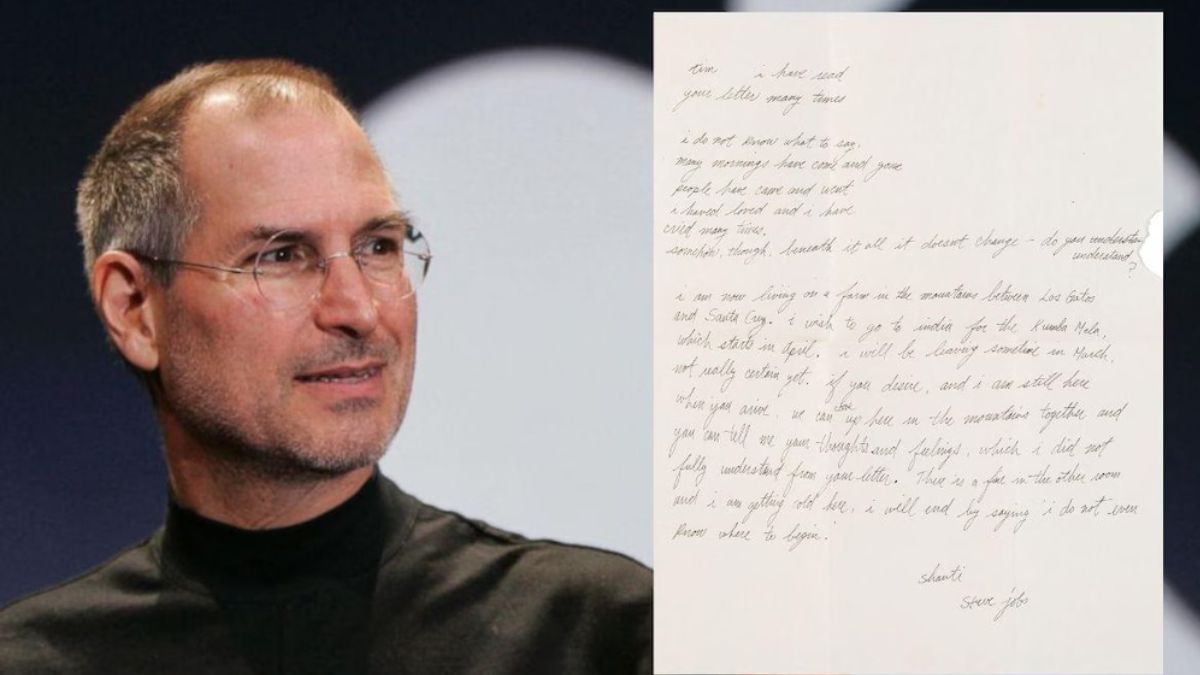 tim i have read
your letter many times
i do not know what to say.
many mornings have come and gone
people have came and went
i haved loved and i have
cried many times.
somehow, though, beneath it all it doesnt change – do you understa
understand
?
i am now living on a farm in the mountains between Los Gatos
and Santa Cruz. i wish to go to india for the Kumba Mela,
which starts in april. i will be leaving sometime in March,
not really certain yet. if you desire, and i am still here
when you arive, we can up here in the mountains together and
you can tell me your thoughts and feelings, which i did not
fully understand from your letter. There is a fire in the other room
and i am getting cold here. i will end by saying 'i do not even
know where to begin.'
shanti
steve jobs